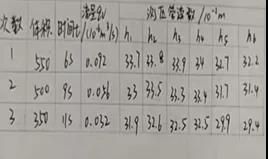 次数 体积 时间t 流量qv/(10⁻³m³/s) 测压管读数/10⁻²m
h₁ h₂ h₃ h₄ h₅ h₆
1 550 6s 0.092 33.7 33.8 33.9 34 32.7 32.2
2 500 9s 0.056 33 33.5 33.3 33.4 31.7 31.4
3 350 11s 0.032 31.9 32.6 32.5 32.5 29.9 29.4